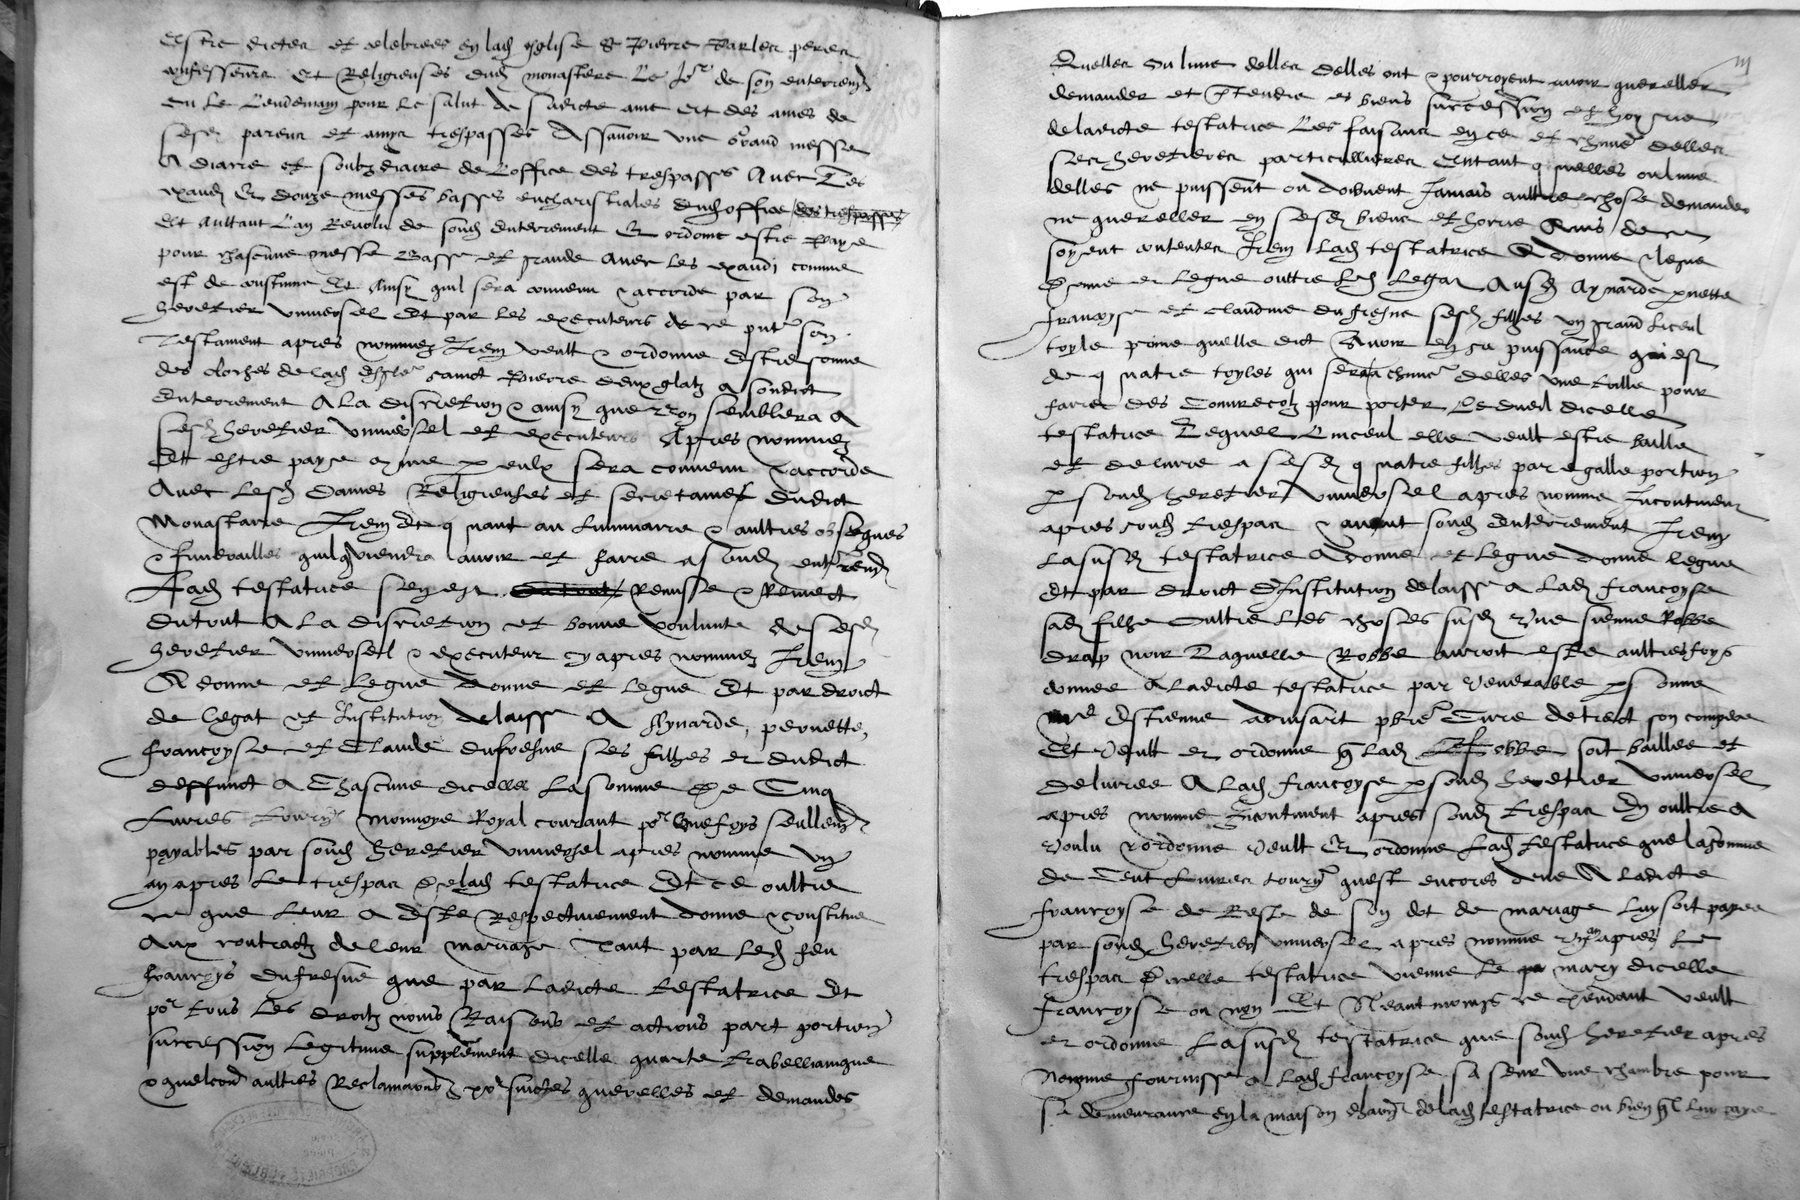 Estre dictes et celebrees en lad eglise St Pierre par les peres
confesseurs et Religieuses dud monastere le Jor de son enterremt
ou le lendemain pour le salut de sadicte ame et des ames de
sesd parens et amys trespasses Assavoir une grand messe
A diacre et soubzdiacre de loffice des trespasses Avec les
exaudi et douze messes basses eucharistiales dud office des trespasses
Et aultant lan Revolu de sond enterrement et ordonne estre paye
pour chascune messe basse et grande avec les exaudi comme
est de coustume Et Ainsy quil sera convenu & accorde par son
heretier universel Et par les executeurs de ce pnt son
Testament apres nommez Item veult & ordonne Estre sonne
des cloches de lad Esglise sainct Pierre deux glatz a sondict
Enterrement A la discretion & ainsy que bon semblera A
sesd heretier universel et executeurs Apres nommez
Et estre paye comme p eulx sera convenu & accorde
Avec lesd Dames Religieuses et secretaines dudict
Monastaire Item Et quant au luminaire & aultres obseques
& funerailles quil conviendra avoir et faire a sond enterremt
Lad testatrice sen est Remisse & Remect
du tout A la discretion et bonne voulunte de sesd
heretier universel & executeur cy apres nommez Item
A donne et legue donne et legue Et par droict
de legat et Institution delaisse A Aynarde, pernette,
francoyse et Claude dufresne ses filhes et dudict
deffunct A Chascune dicelles La somme De Cinq
Livres tourn monnoye Royal courant por Une foys seullemt
payables par sond heretier universel apres nomme ung
an apres le trespas de lad testatrice Et ce oultre
ce que leur A Este Respectivement donne & constitue
Aux contractz de leur mariage Tant par led feu
francoys dufresne que par Ladicte testatrice Et
por tous les droitz noms Raisons et actions part portion
succession legitime supplement dicelle quarte trabellianique
& quelconq aultres Reclamations & porsuictes querelles et demandes
Quelles ou lune delles Delles ont & pourroyent avoir quereller
demander et ptendre es biens succession et hoyrie
de ladicte testatrice Les faisant en ce et chune delles
ses heretieres particullieres Entant quelles ou lune
delles ne puissent ou doibvent Jamais aultre chose demander
ne quereller en sesd biens et hoirie Ains de ce
soyent contentes Item Lad testatrice A donne & legue
Donne et legue oultre led Legat Ausd Aynarde pnette
francoyse et claudine du fresne sesd filhes ung grand linceul
toyle prime quelle dict Avoir en sa puissance qui est
de quatre toyles qui sera a chune delles une tulle pour
faire des Couvrecolz pour porter le dueil dicelle
testatrice Lequel Linceul elle veult estre baille
et delivre a sesd quatre filhes par egalle portion
p sond heretier universel apres nomme Incontinent
apres sond trespas & avant sond Enterrement Item
La susd testatrice A donne et legue donne legue
Et par droict dInstitution delaisse A Lad francoyse
sad filhe Oultre les choses susd Une sienne Robbe
drap noir Laquelle Robbe auroit este aultresfoys
donnee A ladicte testatrice par Venerable psonne
Estienne pbre Cure de son compere
Et Veult et ordonne q lad Robbe soit baillee et
delivree A lad francoyse p sond heretier universel
apres nomme Incontinent apres sond trespas En oultre A
voulu & ordonne veult Et ordonne Lad testatrice que la somme
de Cent Livres tourn quest encores deue A ladicte
francoyse de Reste de son dot de mariage luy soit payee
par sond heretier universel apres nomme ung an apres le
trespas dicelle testatrice vienne le mary dicelle
francoyse ou non Et Neantmoings ce pendant veult
et ordonne La susd testatrice que sond heretier apres
nomme fournisse a lad francoyse sa seur une chambre pour
sa demeurance en la maison de lad testatrice ou bien q luy paye